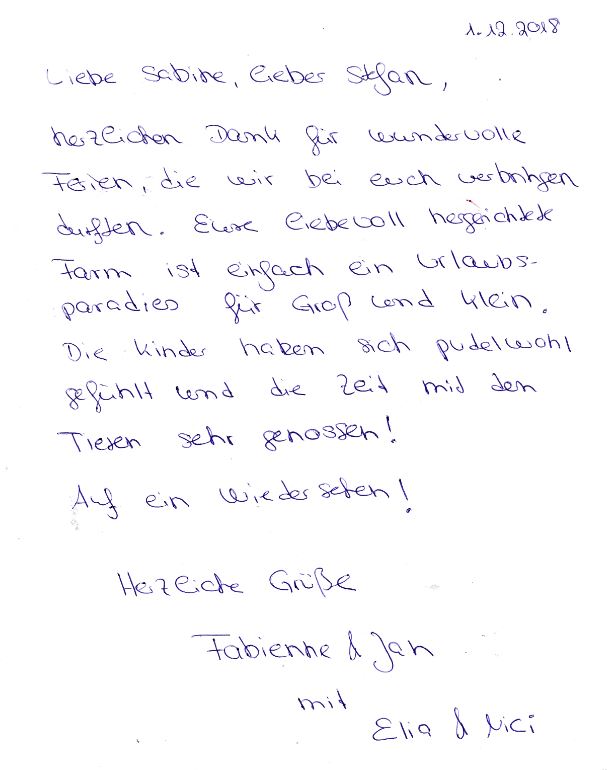 1.12.2018
Liebe Sabine, lieber Stefan,
herzlichen Dank für wundervolle
Ferien, die wir bei euch verbringen
durften. Eure liebevoll hergerichtete
Farm ist einfach ein Urlaubs-
paradies für Groß und Klein.
Die Kinder haben sich pudelwohl
gefühlt und die Zeit mit den
Tieren sehr genossen!
Auf ein Wiedersehen!
Herzliche Grüße
Fabienne & Jan
mit
Elia & Nici